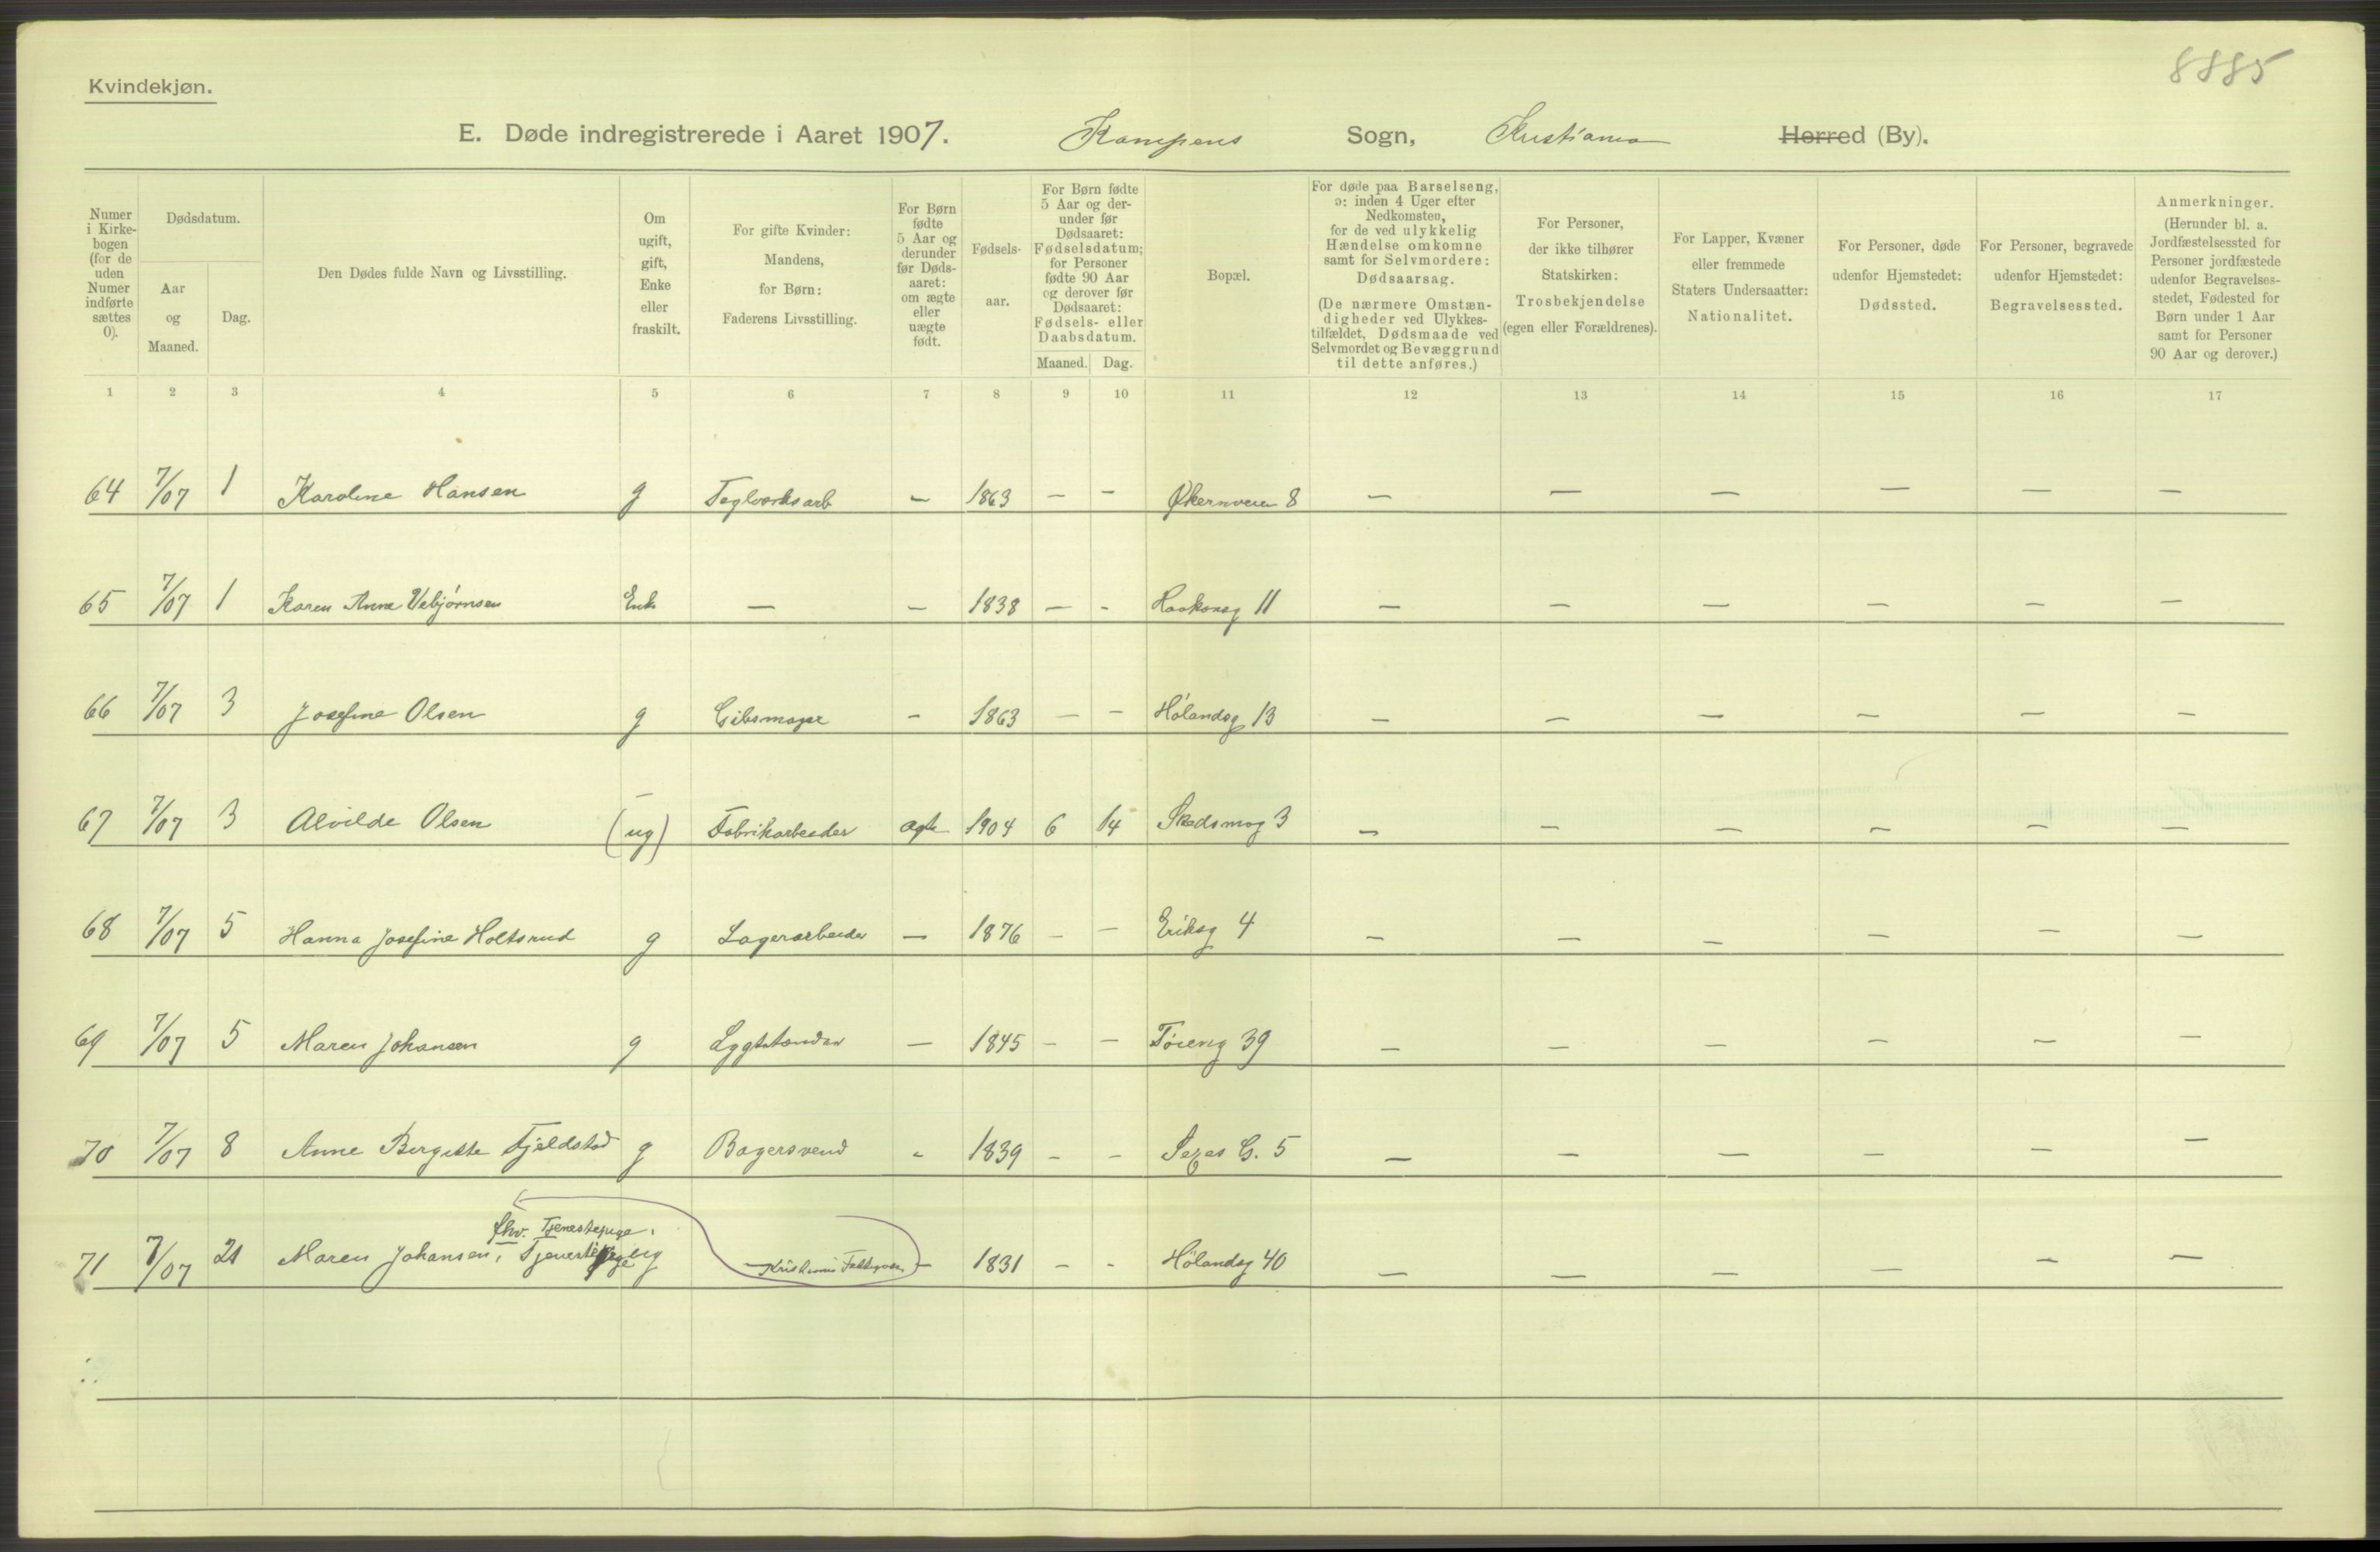 8885
Kvindekjøn.
E. Døde indregistrerede i Aaret 1907. Kampens Sogn, Kristiania Herred (By).
Numer i Kirkebogen (for de uden Numer indførte sættes 0).
Dødsdatum.
Aar og Maaned.
Dag.
Den Dødes fulde Navn og Livsstilling.
Om ugift, gift, Enke eller fraskilt.
For gifte Kvinder: Mandens, for Børn: Faderens Livsstilling.
For Børn fødte 5 Aar og derunder før Dødsaaret: om ægte eller uægte født.
Fødselsaar.
For Børn fødte 5 Aar og derunder før Dødsaaret: Fødselsdatum; for Personer fødte 90 Aar og derover før Dødsaaret: Fødsels- eller Daabsdatum.
Maaned. Dag.
Bopæl.
For døde paa Barselseng, ɔ: inden 4 Uger efter Nedkomsten, for de ved ulykkelig Hændelse omkomne samt for Selvmordere: Dødsaarsag.
(De nærmere Omstændigheder ved Ulykkestilfældet, Dødsmaade ved Selvmordet og Bevæggrund til dette anføres.)
For Personer, der ikke tilhører Statskirken: Trosbekjendelse (egen eller Forældrenes).
For Lapper, Kvæner eller fremmede Staters Undersaatter: Nationalitet.
For Personer, døde udenfor Hjemstedet: Dødssted.
For Personer, begravede udenfor Hjemstedet: Begravelsessted.
Anmerkninger.
(Herunder bl. a. Jordfæstelsessted for Personer jordfæstede udenfor Begravelsesstedet, Fødested for Børn under 1 Aar samt for Personer 90 Aar og derover.)
1 2 3 4 5 6 7 8 9 10 11 12 13 14 15 16 17
64 7/07 1 Karoline Hansen g Teglverksarb — 1863 — — Økernveien 8 — — — — — —
65 7/07 1 Karen Anna Vebjørnsen Enk — — 1838 — - Haakonsg 11 — — — — — —
66 7/07 3 Josefine Olsen g Gibsmager - 1863 — — Hølandsg 13 — — — — — —
67 7/07 3 Alvilde Olsen (ug) Fabrikarbeider ægte 1904 6 14 Skedsmog 3 — — — — — —
68 7/07 5 Hanna Josefine Holtsrud g Lagerarbeider — 1876 — — Eriksg 4 — — — — — —
69 7/07 5 Maren Johansen g Lygtetænder — 1845 — — Tøieng 39 — — — — — —
70 7/07 8 Anne Bergitte Fjeldstad g Bagersvend - 1839 - - Sexes G. 5 — — — — — —
fhv. Tjenestepige.
71 7/07 21 Maren Johansen, Tjenestepige ug — — 1831 - - Hølandsg 40 — — — — — —